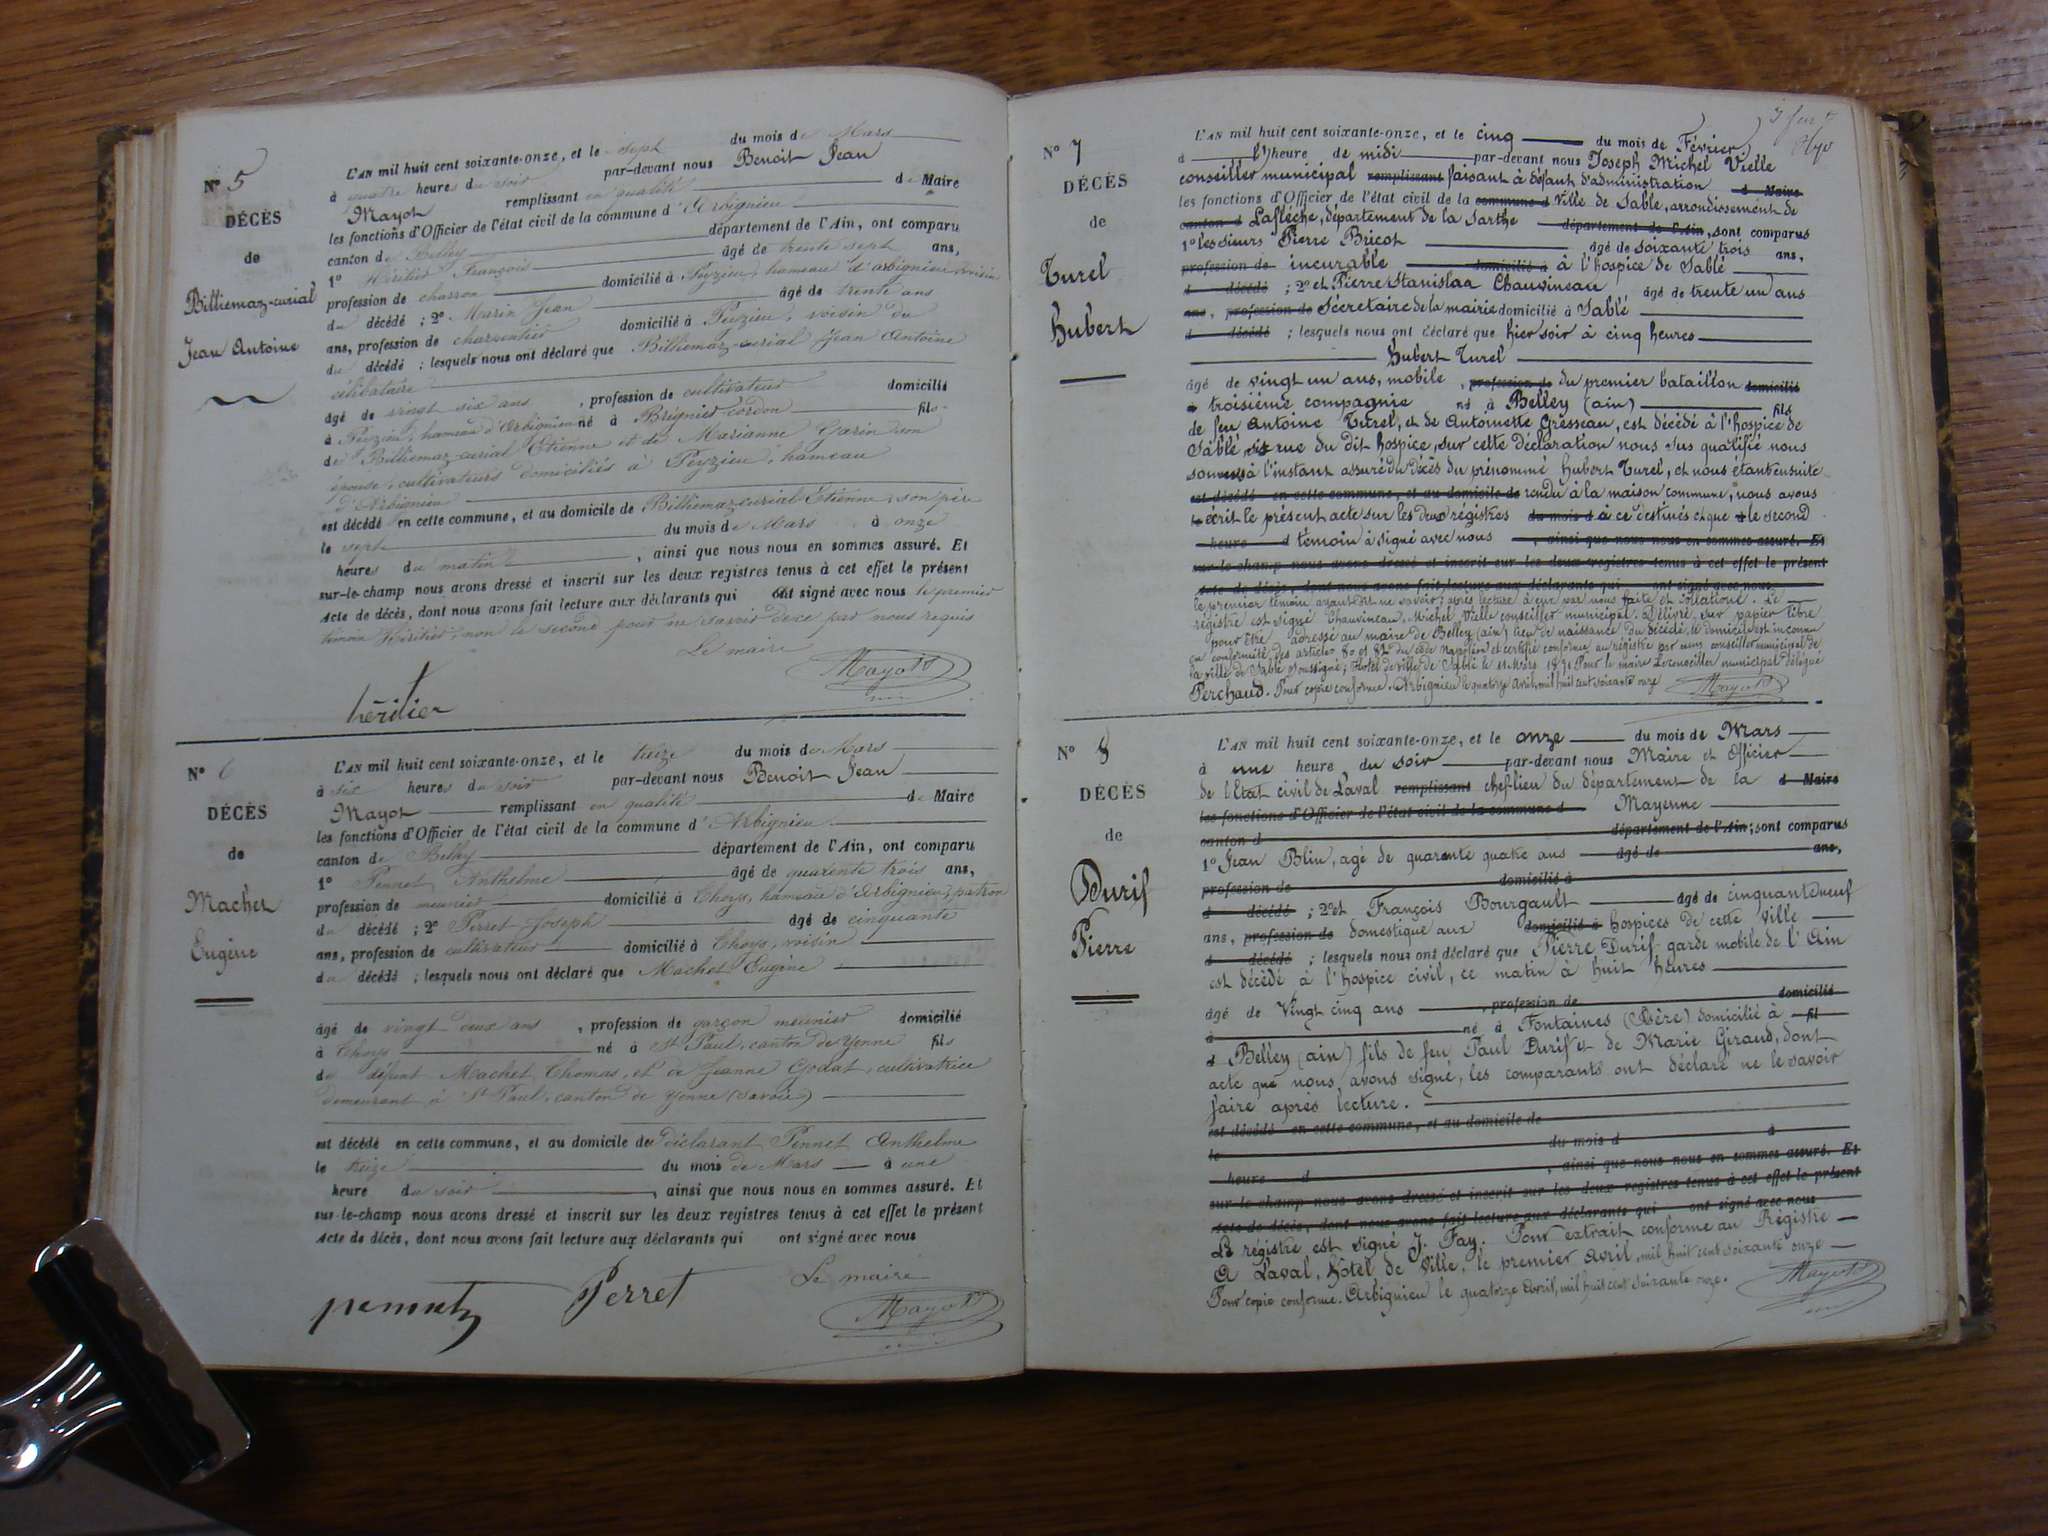 N° 5
DÉCÈS
de
Billiemaz-curial
Jean Antoine
L'AN mil huit cent soixante-onze, et le sept du mois de Mars
à quatre heures du soir par-devant nous Benoit Jean
Mayot remplissant en qualité de Maire
les fonctions d'Officier de l'état civil de la commune d'Arbignieu
canton de Belley département de l'Ain, ont comparu
1° Héritier François âgé de trente sept ans,
profession de charron domicilié à Peyzieu, hameau d'arbignieu, voisin
du décédé ; 2° Marin Jean âgé de trente ans
ans, profession de charpentier domicilié à Peyzieu, voisin du
du décédé ; lesquels nous ont déclaré que Billiemaz-curial Jean Antoine
célibataire
âgé de vingt six ans , profession de cultivateur domicilié
à Peyzieu, hameau d'Arbignieu né à Brégnier-Cordon fils
de Billiemaz-curial Etienne et de Marianne Garin son
épouse, cultivateurs domiciliés à Peyzieu, hameau
d'Arbignieu
est décédé en cette commune, et au domicile de Billiemaz-curial Etienne, son père
le sept du mois de Mars à onze
heures du matin , ainsi que nous nous en sommes assuré. Et
sur-le-champ nous avons dressé et inscrit sur les deux registres tenus à cet effet le présent
Acte de décès, dont nous avons fait lecture aux déclarants qui ont signé avec nous le premier
témoin Héritier, non le second pour ne savoir de ce par nous requis
Le maire
Mayot
héritier
N° 6
DÉCÈS
de
Machet
Eugène
L'AN mil huit cent soixante-onze, et le treize du mois de Mars
à six heures du soir par-devant nous Benoit Jean
Mayot remplissant en qualité de Maire
les fonctions d'Officier de l'état civil de la commune d'Arbignieu
canton de Belley département de l'Ain, ont comparu
1° Pennet Anthelme âgé de quarente trois ans,
profession de meunier domicilié à Thoys, hameau d'Arbignieu, patron
du décédé ; 2° Perret Joseph âgé de cinquante
ans, profession de cultivateur domicilié à Thoys, voisin
du décédé ; lesquels nous ont déclaré que Machet Eugène
âgé de vingt deux ans , profession de garçon meunier domicilié
à Thoys né à St Paul, canton de Yenne fils
de défunt Machet Thomas, et de Jeanne Godat, cultivatrice
demeurant à St Paul, canton de Yenne (Savoie)
est décédé en cette commune, et au domicile de déclarant Pennet Anthelme
le treize du mois de Mars à une
heure du soir , ainsi que nous nous en sommes assuré. Et
sur-le-champ nous avons dressé et inscrit sur les deux registres tenus à cet effet le présent
Acte de décès, dont nous avons fait lecture aux déclarants qui ont signé avec nous
Le maire
Perret
Mayot
N° 7
DÉCÈS
de
Turel
Hubert
L'AN mil huit cent soixante-onze, et le cinq du mois de Février
à l'heure de midi par-devant nous Joseph Michel Vielle
conseiller municipal remplissant faisant à défaut d'administration d Maire
les fonctions d'Officier de l'état civil de la commune d ville de Sablé, arrondissement de
canton d Laflèche, département de la Sarthe département de l'Ain, sont comparus
1° les sieurs Pierre Bricot âgé de soixante trois ans,
profession de incurable domicilié à à l'hospice de Sablé
d décédé ; 2° et Pierre Stanislaa Chauvineau âgé de trente un ans
ans, profession de Sécretaire de la mairie domicilié à Sablé
d décédé ; lesquels nous ont déclaré que hier soir à cinq heures
Hubert Turel
âgé de vingt un ans, mobile , profession de du premier bataillon domicilié
à troisième compagnie né à Belley (ain) fils
de feu Antoine Turel, et de Antoinette Gresseau, est décédé à l'hospice de
Sablé, sis rue du dit hospice, sur cette déclaration nous sus qualifié nous
sommes à l'instant assuré du décès du prénommé Hubert Turel, et nous étant ensuite
est décédé en cette commune, et au domicile de rendu à la maison commune, nous avons
le écrit le présent acte sur les deux régistres du mois d à ce destinés et que à le second
heure d témoin à signé avec nous , ainsi que nous nous en sommes assuré. Et
sur-le-champ nous avons dressé et inscrit sur les deux registres tenus à cet effet le présent
Acte de décès, dont nous avons fait lecture aux déclarants qui ont signé avec nous
le premier témoin ayant dit ne savoir, après lecture à eux par nous faite et collationé. Le
régistre est signé Chauvineau, Michel Vielle conseiller municipal. Délivré sur papier libre
pour être adressé au maire de Belley (ain) lieu de naissance du décédé, le domicile est inconnu
en conformité des articles 80 et 82 du code Napoléon et certifié conforme au régistre par nous conseiller municipal de
la ville de Sablé soussigné, Hotel de ville de Sablé le 11 Mars 1871 Pour le maire Le conseiller municipal délégué
Perchaud. Pour copie conforme. Arbignieu le quatorze Avril, mil huit cent soixante onze Mayot
N° 8
DÉCÈS
de
Durif
Pierre
L'AN mil huit cent soixante-onze, et le onze du mois de Mars
à une heure du soir par-devant nous Maire et Officier
de l'Etat civil de Laval remplissant chef-lieu du département de la d Maire
les fonctions d'Officier de l'état civil de la commune d Mayenne
canton d département de l'Ain, sont comparus
1° Jean Blin, agé de quarante quatre ans âgé de ans,
profession de domicilié à
d décédé ; 2° et François Bourgault âgé de cinquante neuf
ans, profession de domestique aux domicilié à hospices de cette ville
d décédé ; lesquels nous ont déclaré que Pierre Durif garde mobile de l'Ain
est décédé à l'hospice civil, ce matin à huit heures
âgé de Vingt cinq ans , profession de domicilié
à né à Fontaines (Isère) domicilié à fil
d Belley (ain) fils de feu Paul Durif et de Marie Giraud, dont
acte que nous avons signé, les comparants ont déclaré ne le savoir
faire après lecture.
est décédé en cette commune, et au domicile de
le du mois d à
heure d , ainsi que nous nous en sommes assuré. Et
sur-le-champ nous avons dressé et inscrit sur les deux registres tenus à cet effet le présent
Acte de décès, dont nous avons fait lecture aux déclarants qui ont signé avec nous
Le régistre est signé J. Fay. Pour extrait conforme au Régistre
A Laval, hôtel de Ville, le premier avril, mil huit cent soixante onze
Pour copie conforme. Arbignieu le quatorze Avril, mil huit cent soixante onze. Mayot